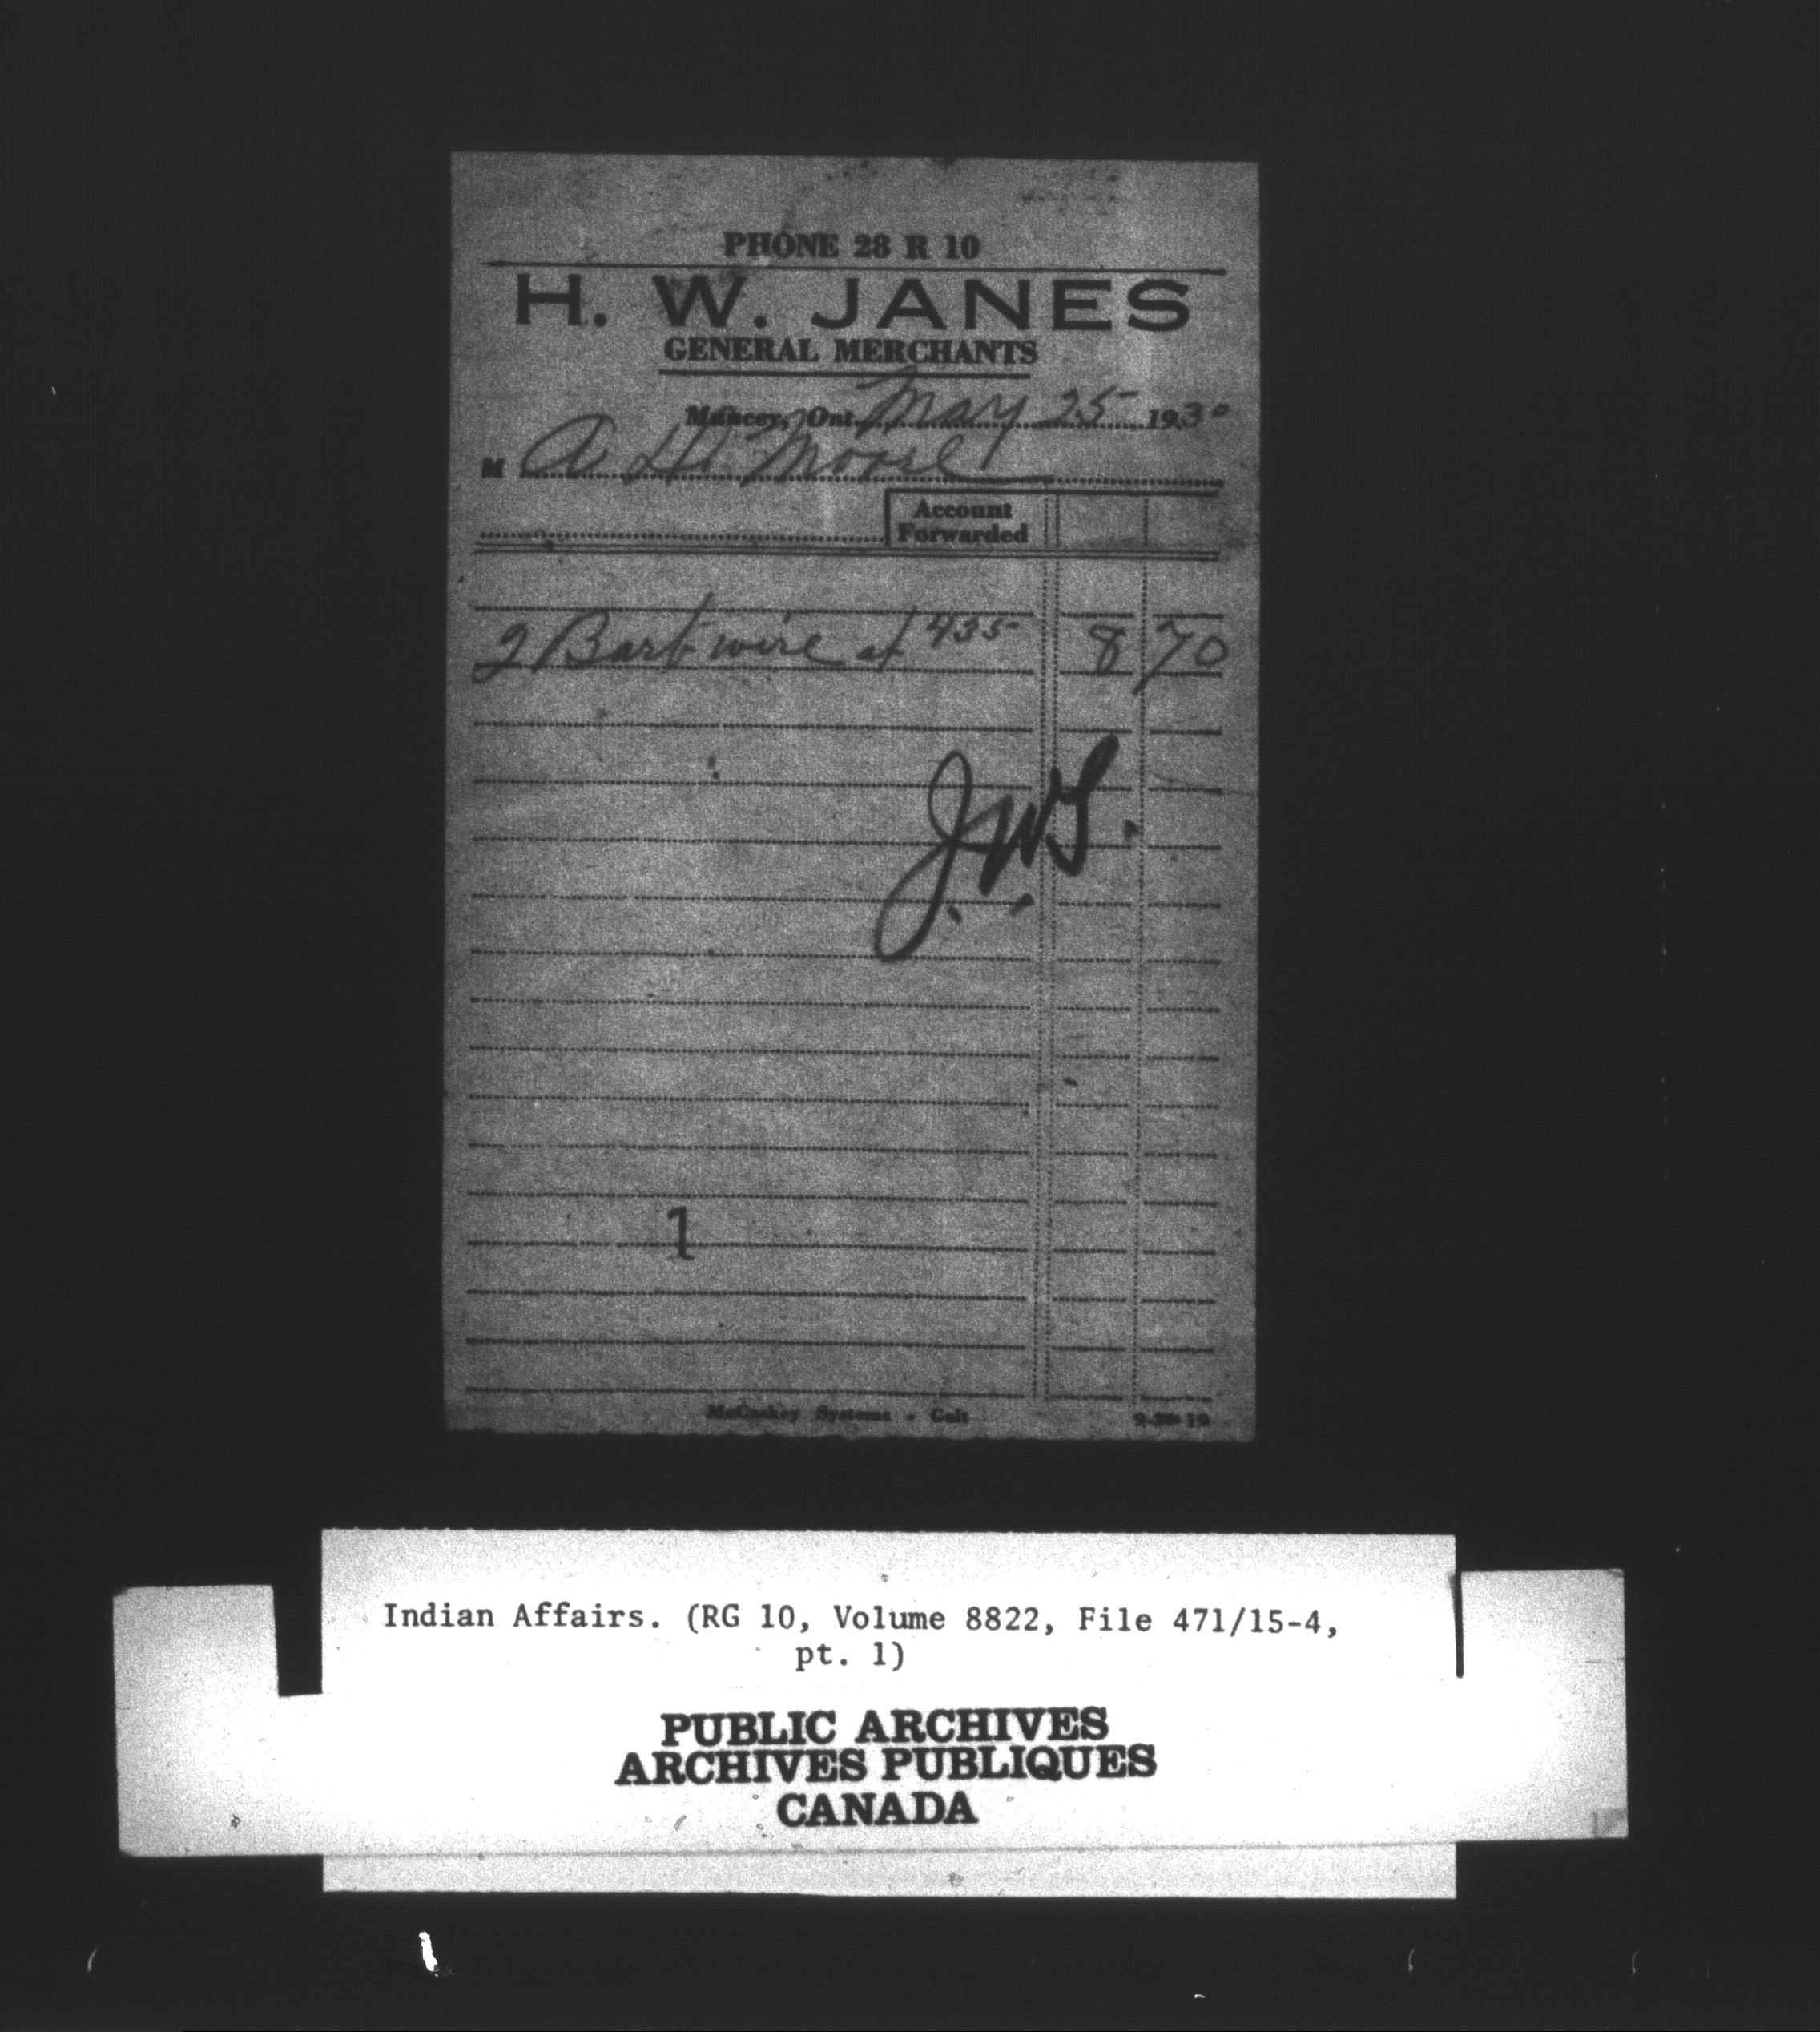 PHONE 28 R 10
H. W. JANES
GENERAL MERCHANTS
Muncey, Ont. May 25 1930
M A Moore
Account
Forwarded
2 Barb wire at 435 8 70
J.W.S.
1
McCaskey Systems - Galt
Indian Affairs. (RG 10, Volume 8822, File 471/15-4,
pt. 1)
PUBLIC ARCHIVES
ARCHIVES PUBLIQUES
CANADA